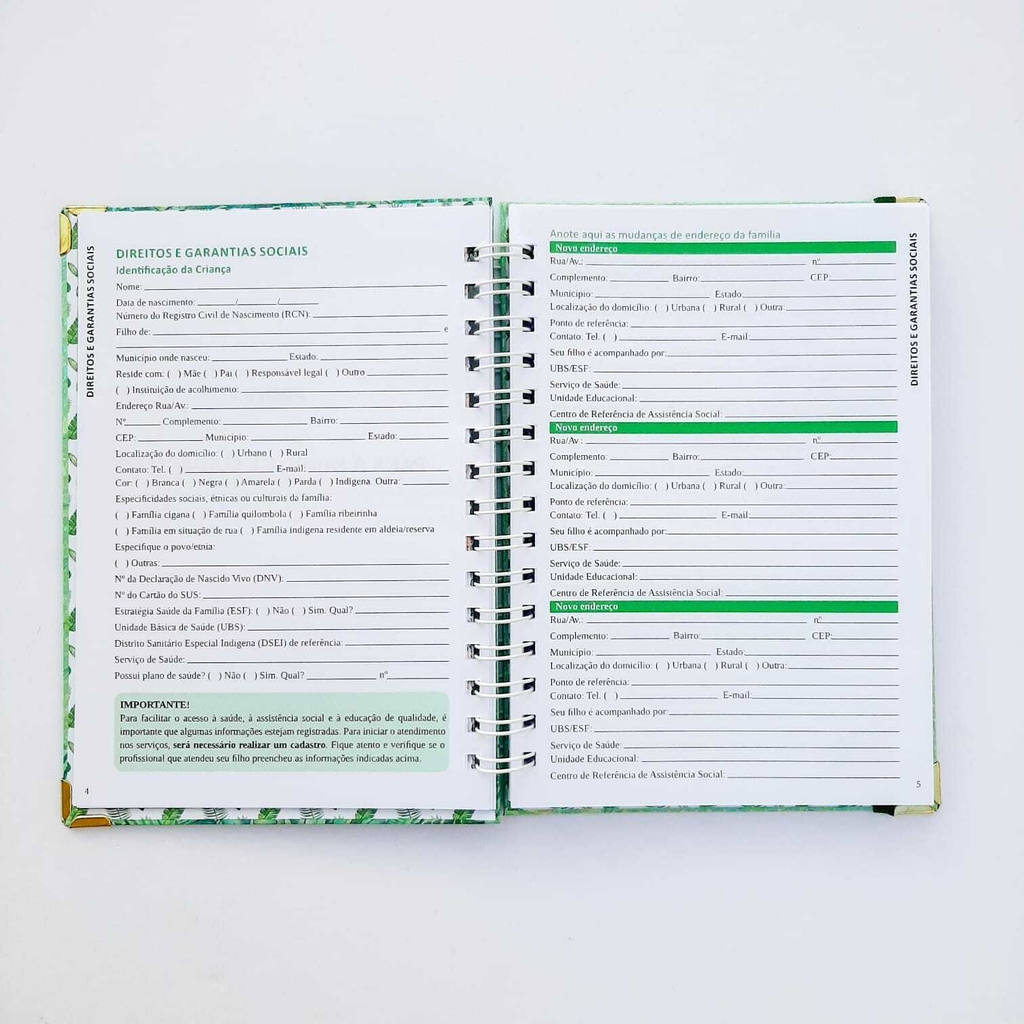 DIREITOS E GARANTIAS SOCIAIS
DIREITOS E GARANTIAS SOCIAIS
Identificação da Criança
Nome:
Data de nascimento: / /
Número do Registro Civil de Nascimento (RCN):
Filho de: e
Município onde nasceu: Estado:
Reside com: ( ) Mãe ( ) Pai ( ) Responsável legal ( ) Outro
( ) Instituição de acolhimento:
Endereço Rua/Av.:
Nº Complemento: Bairro:
CEP: Município: Estado:
Localização do domicílio: ( ) Urbano ( ) Rural
Contato: Tel. ( ) E-mail:
Cor: ( ) Branca ( ) Negra ( ) Amarela ( ) Parda ( ) Indígena. Outra:
Especificidades sociais, étnicas ou culturais da família:
( ) Família cigana ( ) Família quilombola ( ) Família ribeirinha
( ) Família em situação de rua ( ) Família indígena residente em aldeia/reserva
Especifique o povo/etnia:
( ) Outras:
Nº da Declaração de Nascido Vivo (DNV):
Nº do Cartão do SUS:
Estratégia Saúde da Família (ESF): ( ) Não ( ) Sim. Qual?
Unidade Básica de Saúde (UBS):
Distrito Sanitário Especial Indígena (DSEI) de referência:
Serviço de Saúde:
Possui plano de saúde? ( ) Não ( ) Sim. Qual? nº
IMPORTANTE!
Para facilitar o acesso à saúde, à assistência social e à educação de qualidade, é
importante que algumas informações estejam registradas. Para iniciar o atendimento
nos serviços, será necessário realizar um cadastro. Fique atento e verifique se o
profissional que atendeu seu filho preencheu as informações indicadas acima.
4
Anote aqui as mudanças de endereço da família
Novo endereço
Rua/Av.: nº
Complemento: Bairro: CEP:
Município: Estado:
Localização do domicílio: ( ) Urbana ( ) Rural ( ) Outra:
Ponto de referência:
Contato: Tel. ( ) E-mail:
Seu filho é acompanhado por:
UBS/ESF:
Serviço de Saúde:
Unidade Educacional:
Centro de Referência de Assistência Social:
Novo endereço
Rua/Av.: nº
Complemento: Bairro: CEP:
Município: Estado:
Localização do domicílio: ( ) Urbana ( ) Rural ( ) Outra:
Ponto de referência:
Contato: Tel. ( ) E-mail:
Seu filho é acompanhado por:
UBS/ESF:
Serviço de Saúde:
Unidade Educacional:
Centro de Referência de Assistência Social:
Novo endereço
Rua/Av.: nº
Complemento: Bairro: CEP:
Município: Estado:
Localização do domicílio: ( ) Urbana ( ) Rural ( ) Outra:
Ponto de referência:
Contato: Tel. ( ) E-mail:
Seu filho é acompanhado por:
UBS/ESF:
Serviço de Saúde:
Unidade Educacional:
Centro de Referência de Assistência Social:
5
DIREITOS E GARANTIAS SOCIAIS